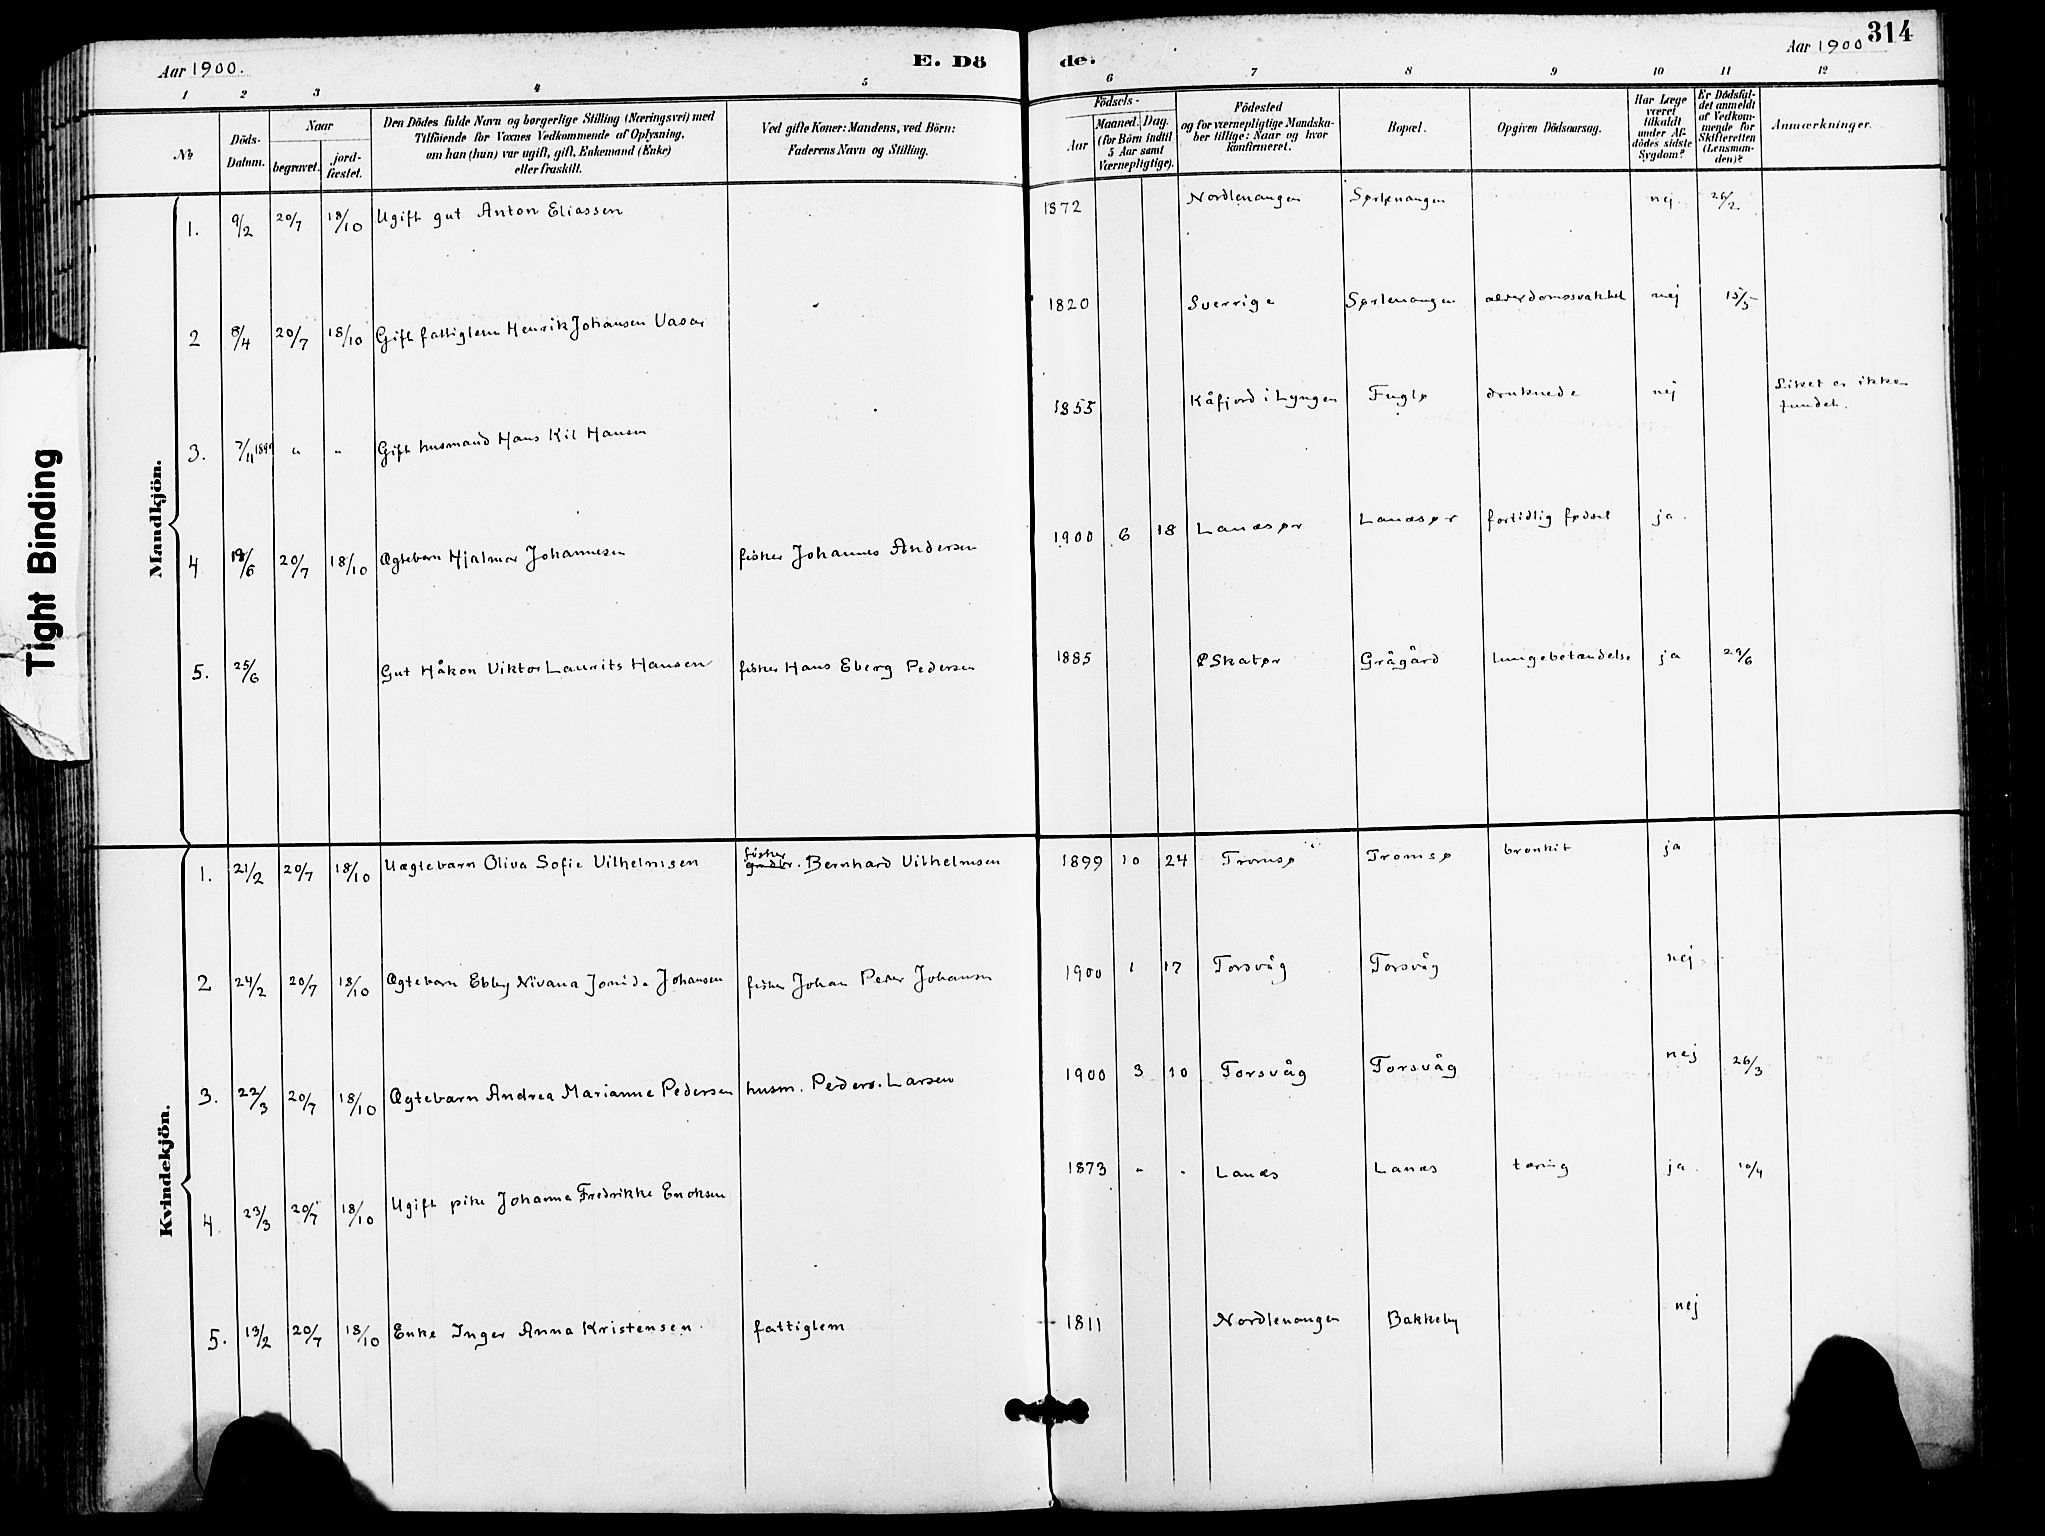 Aar 1900.
E. Dö
de.
Aar 1900
314
1 2 3 4 5 6 7 8 9 10 11 12
No
Döds-Datum.
Naar
begravet.
jord-fæstet.
Den Dödes fulde Navn og borgerlige Stilling (Næringsvei) med
Tilföiende for Voxnes Vedkommende af Oplysning,
om han (hun) var ugift, gift, Enkemand (Enke)
eller fraskilt.
Ved gifte Koner: Mandens, ved Börn:
Faderens Navn og Stilling.
Födsels-
Aar
Maaned. Dag.
(for Börn indtil
5 Aar samt
Værnepligtige).
Födested
og for værnepligtige Mandska-
ber tillige: Naar og hvor
konfirmeret.
Bopæl.
Opgiven Dödsaarsag.
Har Læge
været
tilkaldt
under Af-
dödes sidste
Sygdom?
Er Dödsfal-
det anmeldt
af Vedkom-
mende for
Skifteretten
(Lensman-
den)?
Anmærkninger.
Tight Binding
Mandkjön.
1. 9/2 20/7 18/10 Ugift gut Anton Eliassen 1872 Nordlenangen Sørlenangen nej 26/2
2 8/4 20/7 18/10 Gift fattiglem Henrik Johansen Vasar 1820 Sverrige Sørlenangen alderdomssvakhet nej 15/5
3. 7/11 1899 " " Gift husmand Hans Kil Hansen 1855 Kåfjord i Lyngen Fuglø druknede nej Liket er ikke
fundet.
4 18/6 20/7 18/10 Ægtebarn Hjalmar Johannesen fisker Johannes Andersen 1900 6 18 Lanæsør Lanæsør fortidlig fødsel ja.
5. 25/6 Gut Håkon Viktor Laurits Hansen fisker Hans Eberg Pedersen 1885 Skatør Grågård lungebetændelse ja 29/6
Kvindekjön.
1. 21/2 20/7 18/10 Uægtebarn Oliva Sofie Vilhelmsen fisker Bernhard Vilhelmsen 1899 10 24 Tromsø Tromsø bronkit ja
2 24/2 20/7 18/10 Ægtebarn Ebby Nivana Jonida Johansen fisker Johan Peder Johansen 1900 1 17 Torsvåg Torsvåg nej
3. 22/3 20/7 18/10 Ægtebarn Andrea Marianne Pedersen husm. Peder Larsen 1900 3 10 Torsvåg Torsvåg nej 26/3
4. 23/3 20/7 18/10 Ugift pike Johanna Fredrikke Enoksen 1873 " " Lanæs Lanæs tæring ja. 10/4
5. 13/2 20/7 18/10 Enke Inger Anna Kristensen. fattiglem 1811 Nordlenangen Bakkeby nej